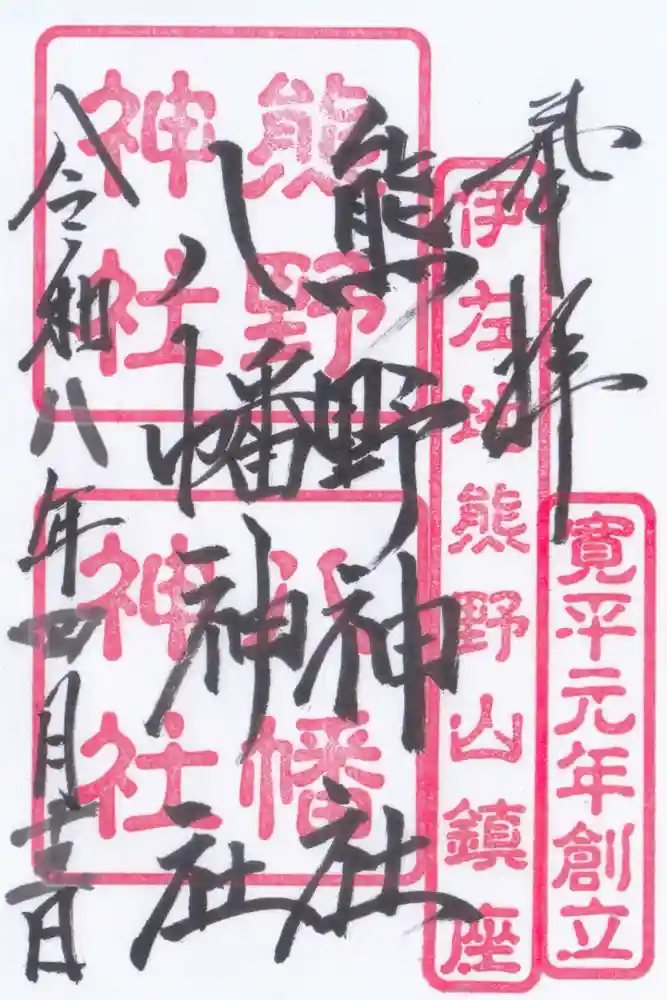 奉拝
寛平元年創立
伊左地熊野山鎮座
熊野神社
八幡神社
熊野
神社
八幡
神社
令和八年四月十二日